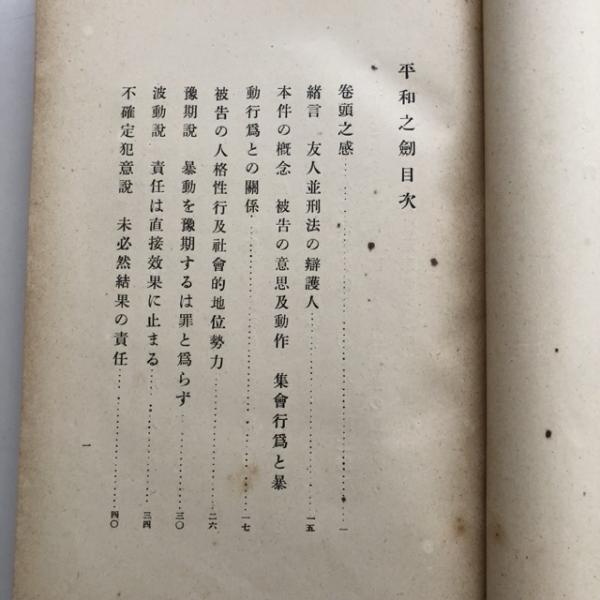 平和之劍目次
卷頭之感……一
緒言　友人並刑法の辯護人……一五
本件の概念　被吿の意思及動作　集會行爲と暴
動行爲との關係……一七
被吿の人格性行及社會的地位勢力……二六
豫期說　暴動を豫期するは罪と爲らず……三〇
波動說　責任は直接效果に止まる……三四
不確定犯意說　未必然結果の責任……四〇
一